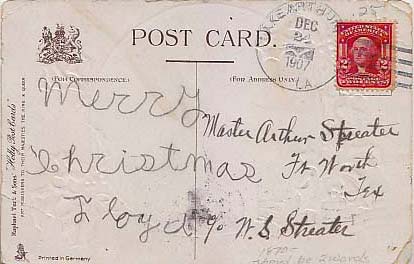 POST CARD.
(FOR CORRESPONDENCE)
(FOR ADDRESS ONLY)
LAKE ARTHUR
DEC
24
1907
LA
25
2 2
Merry
Christmas
Floyd
Master Arthur Streater
Ft Worth
Tex
c/o W. S. Streater
"Holly Post Cards"
Raphael Tuck & Sons'
ART PUBLISHERS TO THEIR MAJESTIES THE KING & QUEEN
Printed in Germany